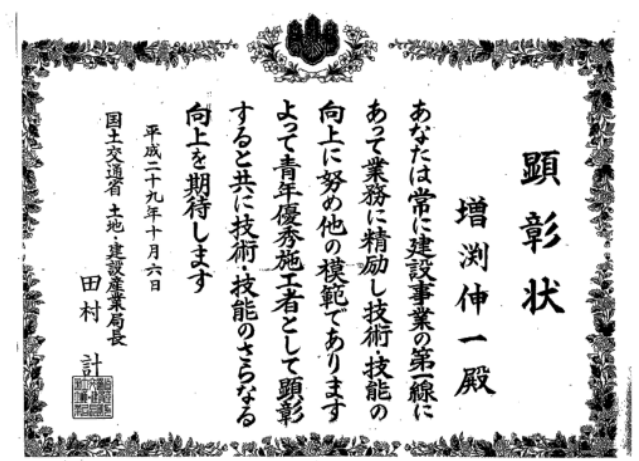 顕彰状
増渕伸一殿
あなたは常に建設事業の第一線に
あって業務に精励し技術・技能の
向上に努め他の模範であります
よって青年優秀施工者として顕彰
すると共に技術・技能のさらなる
向上を期待します
平成二十九年十月六日
国土交通省 土地・建設産業局長
田村 計